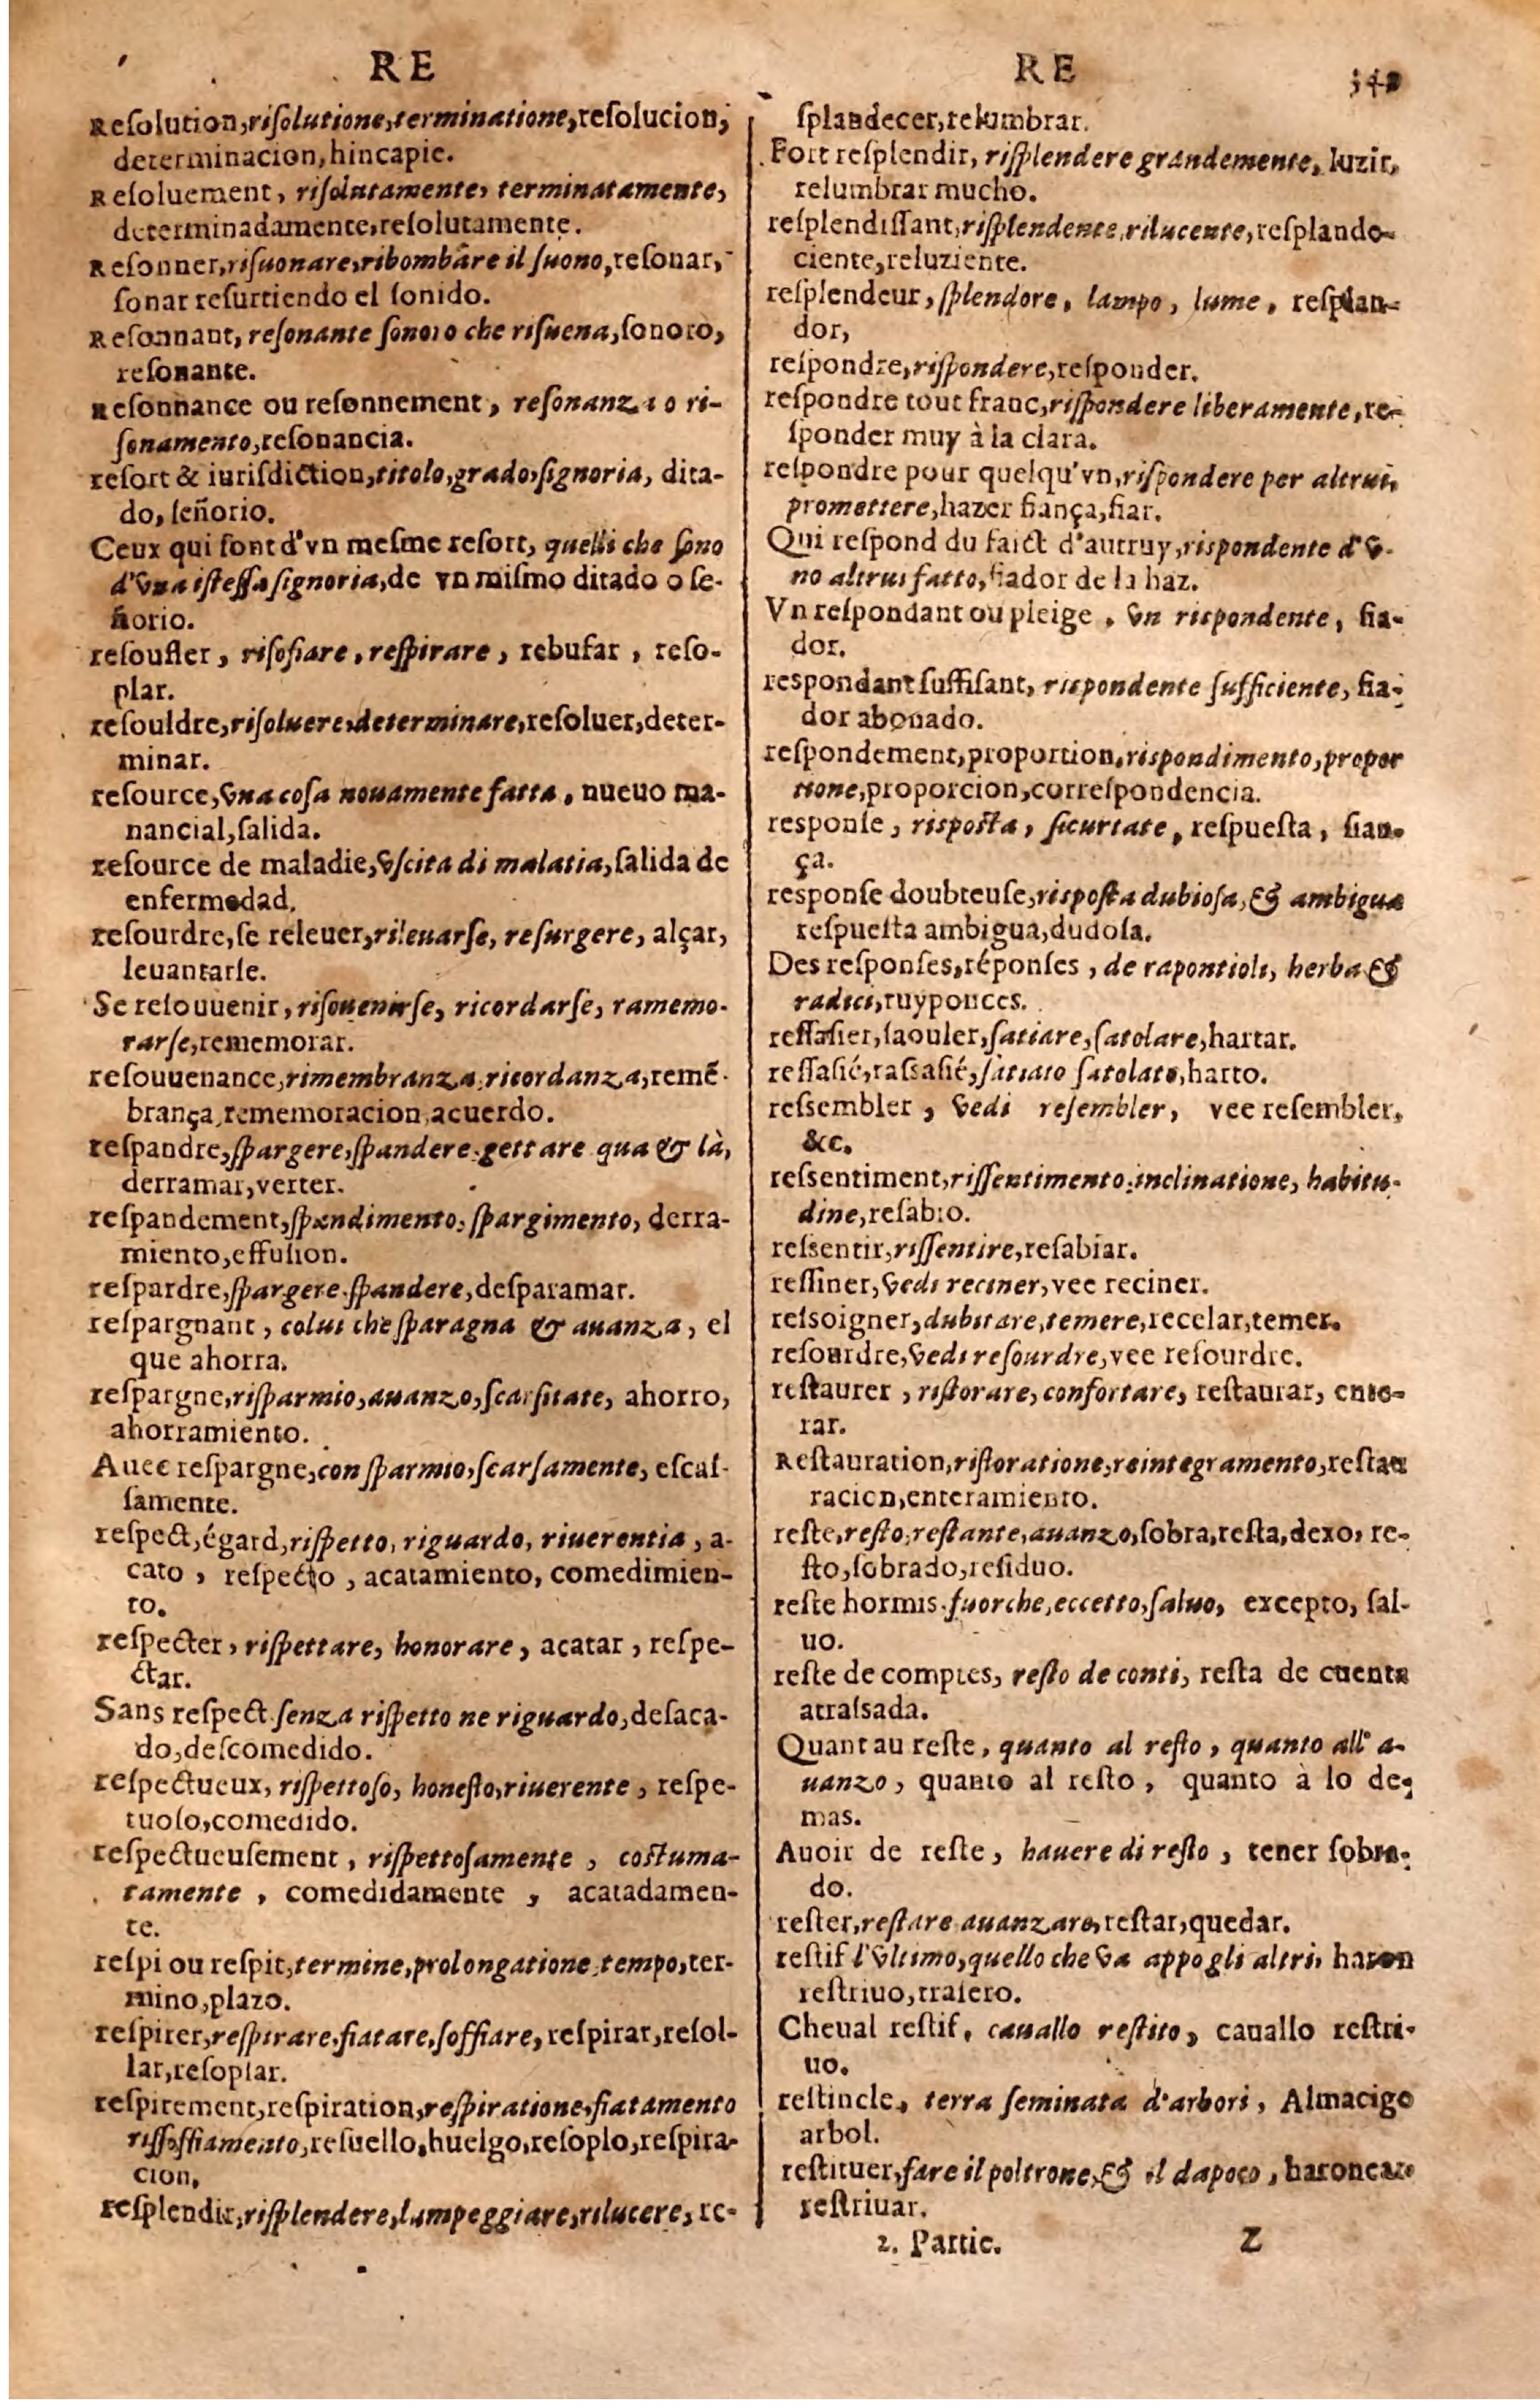 RE
Resolution, risolutione, terminatione, resolucion,
determinacion, hincapie.
Resoluement, risolutamente, terminatamente,
determinadamente, resolutamente.
Resonner, risuonare, ribombare il suono, resonar,
sonar resurtiendo el sonido.
Resonnant, resonante sonoro che risuena, sonoro,
resonante.
Resonnance ou resonnement, resonanza o ri-
sonamento, resonancia.
resort & iurisdiction, titolo, grado, signoria, dita-
do, señorio.
Ceux qui sont d'vn mesme resort, quelli che sono
d'vna istessa signoria, de vn mismo ditado o se-
ñorio.
resoufler, risofiare, respirare, rebufar, reso-
plar.
resouldre, risoluere, determinare, resoluer, deter-
minar.
resource, vna cosa nouamente fatta, nueuo ma-
nancial, salida.
resource de maladie, vscita di malatia, salida de
enfermedad.
resourdre, se releuer, rileuarse, resurgere, alçar,
leuantarse.
Se resouuenir, risouenirse, ricordarse, ramemo-
rarse, rememorar.
resouuenance, rimembranza, ricordanza, remē-
brança, rememoracion, acuerdo.
respandre, spargere, spandere, gettare qua & là,
derramar, verter.
respandement, spandimento, spargimento, derra-
miento, effusion.
respardre, spargere, spandere, desparamar.
respargnant, colui che sparagna & auanza, el
que ahorra.
respargne, risparmio, auanzo, scarsitate, ahorro,
ahorramiento.
Auec respargne, con sparmio, scarsamente, escas-
samente.
respect, égard, rispetto, riguardo, riuerentia, a-
cato, respecto, acatamiento, comedimien-
to.
respecter, rispettare, honorare, acatar, respe-
ctar.
Sans respect, senza rispetto ne riguardo, desaca-
do, descomedido.
respectueux, rispettoso, honesto, riuerente, respe-
tuoso, comedido.
respectueusement, rispettosamente, costuma-
tamente, comedidamente, acatadamen-
te.
respi ou respit, termine, prolongatione, tempo, ter-
mino, plazo.
respirer, respirare, fiatare, soffiare, respirar, resol-
lar, resoplar.
respirement, respiration, respiratione, fiatamento
rissoffiamento, resuello, huelgo, resoplo, respira-
cion,
resplendir, risplendere, lampeggiare, rilucere, re-
RE
splandecer, relumbrar.
Fort resplendir, risplendere grandemente, luzir,
relumbrar mucho.
resplendissant, risplendente, rilucente, resplande-
ciente, reluziente.
resplendeur, splendore, lampo, lume, resplan-
dor,
respondre, rispondere, responder.
respondre tout franc, rispondere liberamente, re-
sponder muy à la clara.
respondre pour quelqu'vn, rispondere per altrui,
promettere, hazer fiança, fiar.
Qui respond du faict d'autruy, rispondente d'v-
no altrui fatto, fiador de la haz.
Vn respondant ou pleige, vn rispondente, fia-
dor.
respondant suffisant, rispondente sufficiente, fia-
dor abonado.
respondement, proportion, rispondimento, propor
tione, proporcion, correspondencia.
response, risposta, sicurtate, respuesta, fian-
ça.
response doubteuse, risposta dubiosa, & ambigua
respuesta ambigua, dudosa.
Des responses, réponses, de rapontioli, herba &
radici, ruyponces.
ressasier, saouler, satiare, satolare, hartar.
ressasié, rassasié, satiato satolato, harto.
ressembler, vedi resembler, vee resembler,
&c.
ressentiment, rissentimento, inclinatione, habitu-
dine, resabio.
ressentir, rissentire, resabiar.
ressiner, vedi reciner, vee reciner.
ressoigner, dubitare, temere, recelar, temer.
resourdre, vedi resourdre, vee resourdre.
restaurer, ristorare, confortare, restaurar, ente-
rar.
Restauration, ristoratione, reintegramento, restau
racion, enteramiento.
reste, resto, restante, auanzo, sobra, resta, dexo, re-
sto, sobrado, residuo.
reste hormis, fuorche, eccetto, saluo, excepto, sal-
uo.
reste de comptes, resto de conti, resta de cuenta
atrassada.
Quant au reste, quanto al resto, quanto all' a-
uanzo, quanto al resto, quanto à lo de-
mas.
Auoir de reste, hauere di resto, tener sobra-
do.
rester, restare auanzare, restar, quedar.
restif l'vltimo, quello che va appo gli altri, haron
restriuo, trasero.
Cheual restif, cauallo restito, cauallo restri-
uo.
restincle, terra seminata d'arbori, Almacigo
arbol.
restituer, fare il poltrone, & il dapoco, haronear
restriuar.
2. Partie. Z